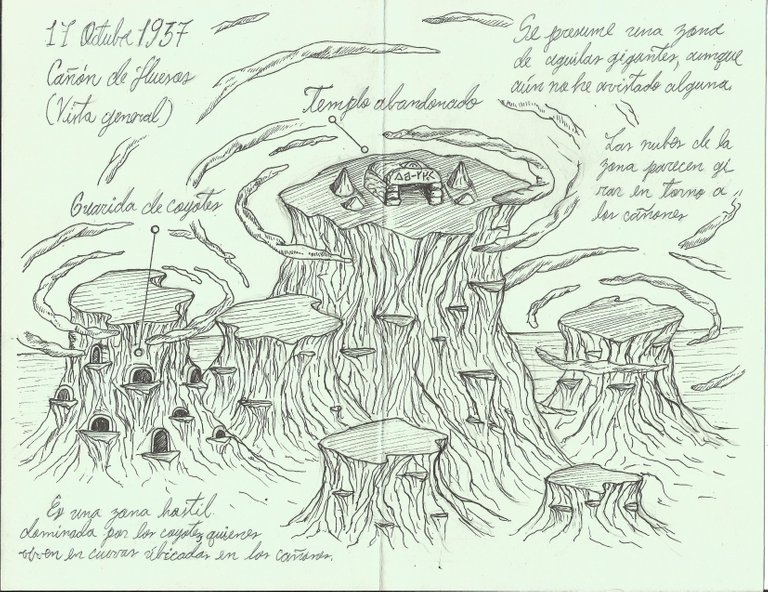 17 Octubre 1937
Cañón de Huesos
(Vista general)
Se presume una zona
de aguilas gigantes, aunque
aún no he avistado alguna.
Templo abandonado
Las nubes de la
zona parecen gi
rar en torno a
los cañones
Guarida de coyotes
Es una zona hostil
dominada por los coyotes quienes
viven en cuevas ubicadas en los cañones.